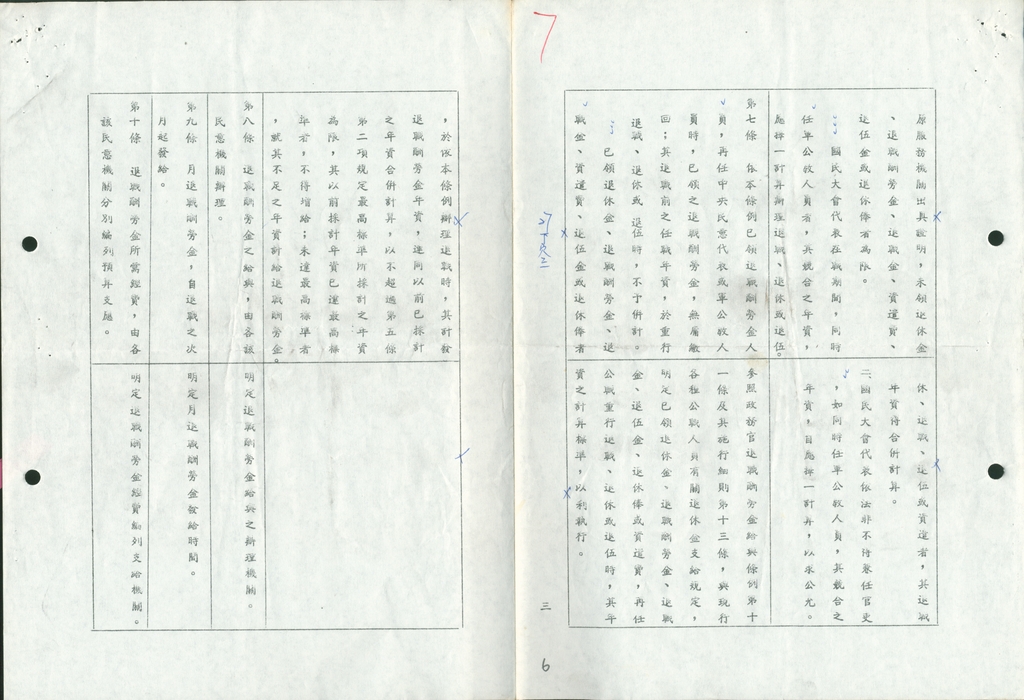 7
原服務機關出具證明,未領退休金
、退職酬勞金、退職金、資遣費、
退伍金或退休俸者為限。
國民大會代表在職期間,同時
任軍公教人員者,其競合之年資,
應擇一計算辦理退職、退休或退伍。
第七條 依本條例已領退職酬勞金人
員,再任中央民意代表或軍公教人
員時,已領之退職酬勞金,無庸繳
回;其退職前之任職年資,於重行
退職、退休或退伍時,不予併計。
已領退休金、退職酬勞金、退
職金、資遣費、退伍金或退休俸者
休、退職、退伍或資遣者,其退職
年資得合併計算。
二、國民大會代表依法非不得兼任官吏
,如同時任軍公教人員,其競合之
年資,自應擇一計算,以求公允。
參照政務官退職酬勞金給與條例第十
一條及其施行細則第十三條,與現行
各種公職人員有關退休金支給規定,
明定已領退休金、退職酬勞金、退職
金、退伍金、退休俸或資遣費,再任
公職重行退職、退休或退伍時,其年
資之計算標準,以利執行。
三
6
,於依本條例辦理退職時,其計發
退職酬勞金年資,連同以前已採計
之年資合併計算,以不超過第五條
第二項規定最高標準所採計之年資
為限,其以前採計年資已達最高標
準者,不得增給;未達最高標準者
,就其不足之年資計給退職酬勞金。
第八條 退職酬勞金之給與,由各該
民意機關辦理。
第九條 月退職酬勞金,自退職之次
月起發給。
第十條 退職酬勞金所需經費,由各
該民意機關分別編列預算支應。
明定退職酬勞金給與之辦理機關。
明定月退職酬勞金發給時間。
明定退職酬勞金經費編列支給機關。